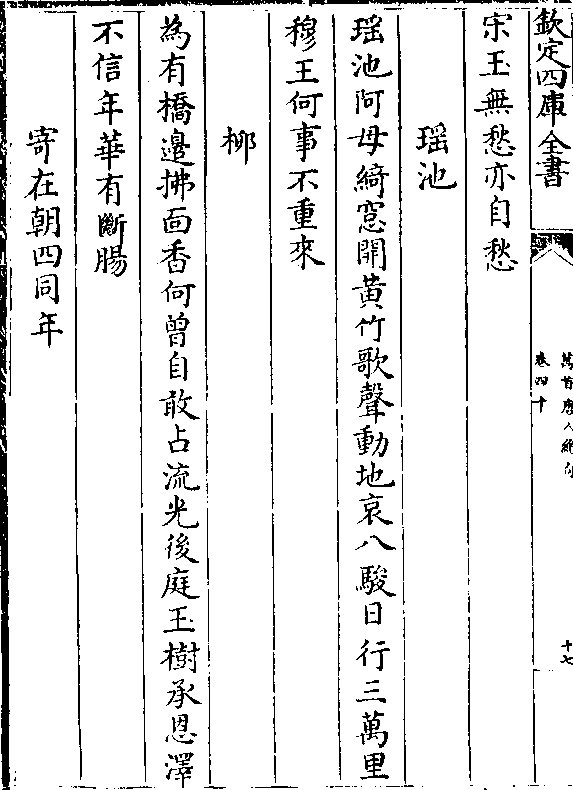 欽定四庫全書
萬首唐人絶句
卷四十
十七
宋玉無愁亦自愁
瑶池
瑶池阿母綺窓開黃竹歌聲動地哀八駿日行三萬里
穆王何事不重來
柳
為有橋邉拂面香何曾自敢占流光後庭玉樹承恩澤
不信年華有斷腸
寄在朝四同年